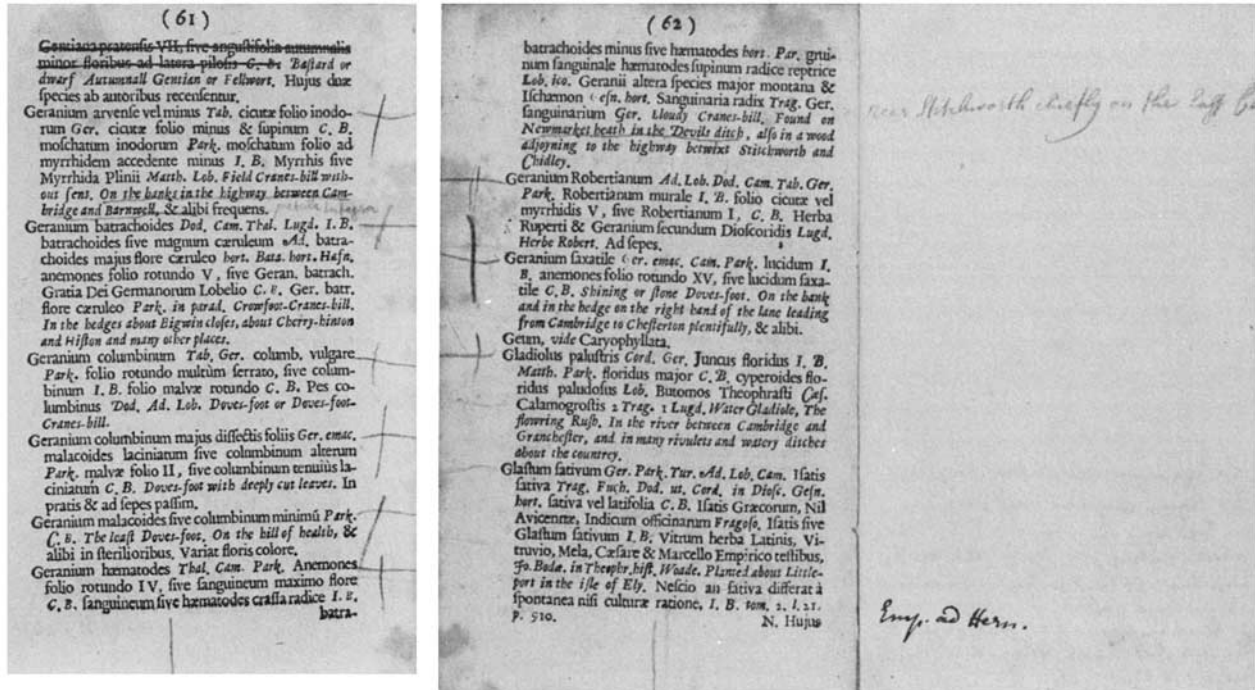 (61)
Gentiana pratensis VII, sive angustifolia autumnalis
minor floribus ad latera pilosis C. B. Bastard or
dwarf Autumnall Gentian or Fellwort. Hujus duæ
species ab autoribus recensentur.
Geranium arvense vel minus Tab. cicutæ folio inodo-
rum Ger. cicutæ folio minus & supinum C. B.
moschatum inodorum Park. moschatum folio ad
myrrhidem accedente minus I. B. Myrrhis sive
Myrrhida Plinii Matth. Lob. Field Cranes-bill with-
out sent. On the banks in the highway between Cam-
bridge and Barnwell, & alibi frequens.
Geranium batrachoides Dod. Cam. Thal. Lugd. I. B.
batrachoides sive magnum cæruleum Ad. batra-
choides majus flore cæruleo hort. Bata. hort. Hafn.
anemones folio rotundo V, sive Geran. batrach.
Gratia Dei Germanorum Lobelio C. B. Ger. batr.
flore cæruleo Park. in parad. Crowfoot-Cranes-bill.
In the hedges about Bigwin closes, about Cherry-hinton
and Histon and many other places.
Geranium columbinum Tab. Ger. columb. vulgare
Park. folio rotundo multùm serrato, sive colum-
binum I. B. folio malvæ rotundo C. B. Pes co-
lumbinus Dod. Ad. Lob. Doves-foot or Doves-foot-
Cranes-bill.
Geranium columbinum majus dissectis foliis Ger. emac.
malacoides laciniatum sive columbinum alterum
Park. malvæ folio II, sive columbinum tenuiùs la-
ciniatum C. B. Doves-foot with deeply cut leaves. In
pratis & ad sepes passim.
Geranium malacoides sive columbinum minimũ Park.
C. B. The least Doves-foot. On the hill of health, &
alibi in sterilioribus. Variat floris colore.
Geranium hæmatodes Thal. Cam. Park. Anemones
folio rotundo IV, sive sanguineum maximo flore
C. B. sanguineum sive hæmatodes crassa radice I. B.
batra-
(62)
batrachoides minus sive hæmatodes hort. Par. grui-
num sanguinale hæmatodes supinum radice reptrice
Lob. ico. Geranii altera species major montana &
Ischæmon Gesn. hort. Sanguinaria radix Trag. Ger.
sanguinarium Ger. Bloudy Cranes-bill. Found on
Newmarket heath in the Devils ditch, also in a wood
adjoyning to the highway betwixt Stitchworth and
Chidley.
Geranium Robertianum Ad. Lob. Dod. Cam. Tab. Ger.
Park. Robertianum murale I. B. folio cicutæ vel
myrrhidis V, sive Robertianum I, C. B. Herba
Ruperti & Geranium secundum Dioscoridis Lugd.
Herbe Robert. Ad sepes.
Geranium saxatile Ger. emac. Cam. Park. lucidum I.
B. anemones folio rotundo XV, sive lucidum saxa-
tile C. B. Shining or stone Doves-foot. On the bank
and in the hedge on the right hand of the lane leading
from Cambridge to Chesterton plentifully, & alibi.
Geum, vide Caryophyllata.
Gladiolus palustris Cord. Ger. Juncus floridus I. B.
Matth. Park. floridus major C. B. cyperoides flo-
ridus paludosus Lob. Butomos Theophrasti Cæs.
Calamogrostis 2 Trag. 1 Lugd. Water Gladiole, The
flowring Rush. In the river between Cambridge and
Granchester, and in many rivulets and watery ditches
about the countrey.
Glastum sativum Ger. Park. Tur. Ad. Lob. Cam. Isatis
sativa Trag. Fuch. Dod. ut. Cord. in Diosc. Gesn.
hort. sativa vel latifolia C. B. Isatis Græcorum, Nil
Avicennæ, Indicum officinarum Fragoso. Isatis sive
Glastum sativum I. B. Vitrum herba Latinis, Vi-
truvio, Mela, Cæsare & Marcello Empirico testibus,
Jo. Bodæ. in Theophr. hist. Woade. Planted about Little-
port in the isle of Ely. Nescio an sativa differat à
spontanea nisi culturæ ratione. I. B. tom. 2. l. 21.
p. 910.
N. Hujus
near Stitchworth chiefly on the East
Emp. ad Hern.